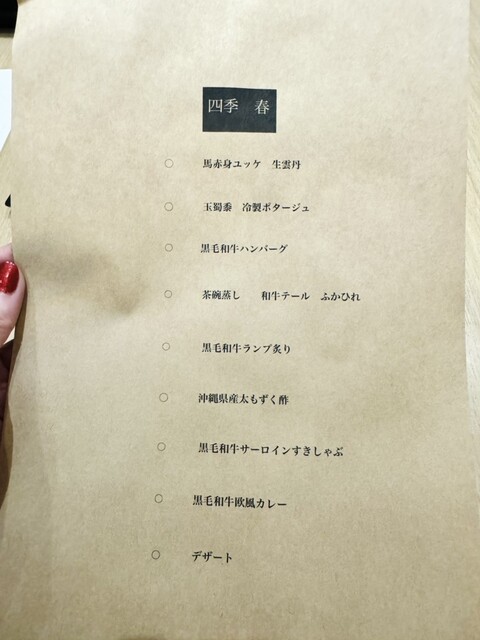 四季　春
○ 馬赤身ユッケ　生雲丹
○ 玉蜀黍　冷製ポタージュ
○ 黒毛和牛ハンバーグ
○ 茶碗蒸し　　和牛テール　ふかひれ
○ 黒毛和牛ランプ炙り
○ 沖縄県産太もずく酢
○ 黒毛和牛サーロインすきしゃぶ
○ 黒毛和牛欧風カレー
○ デザート